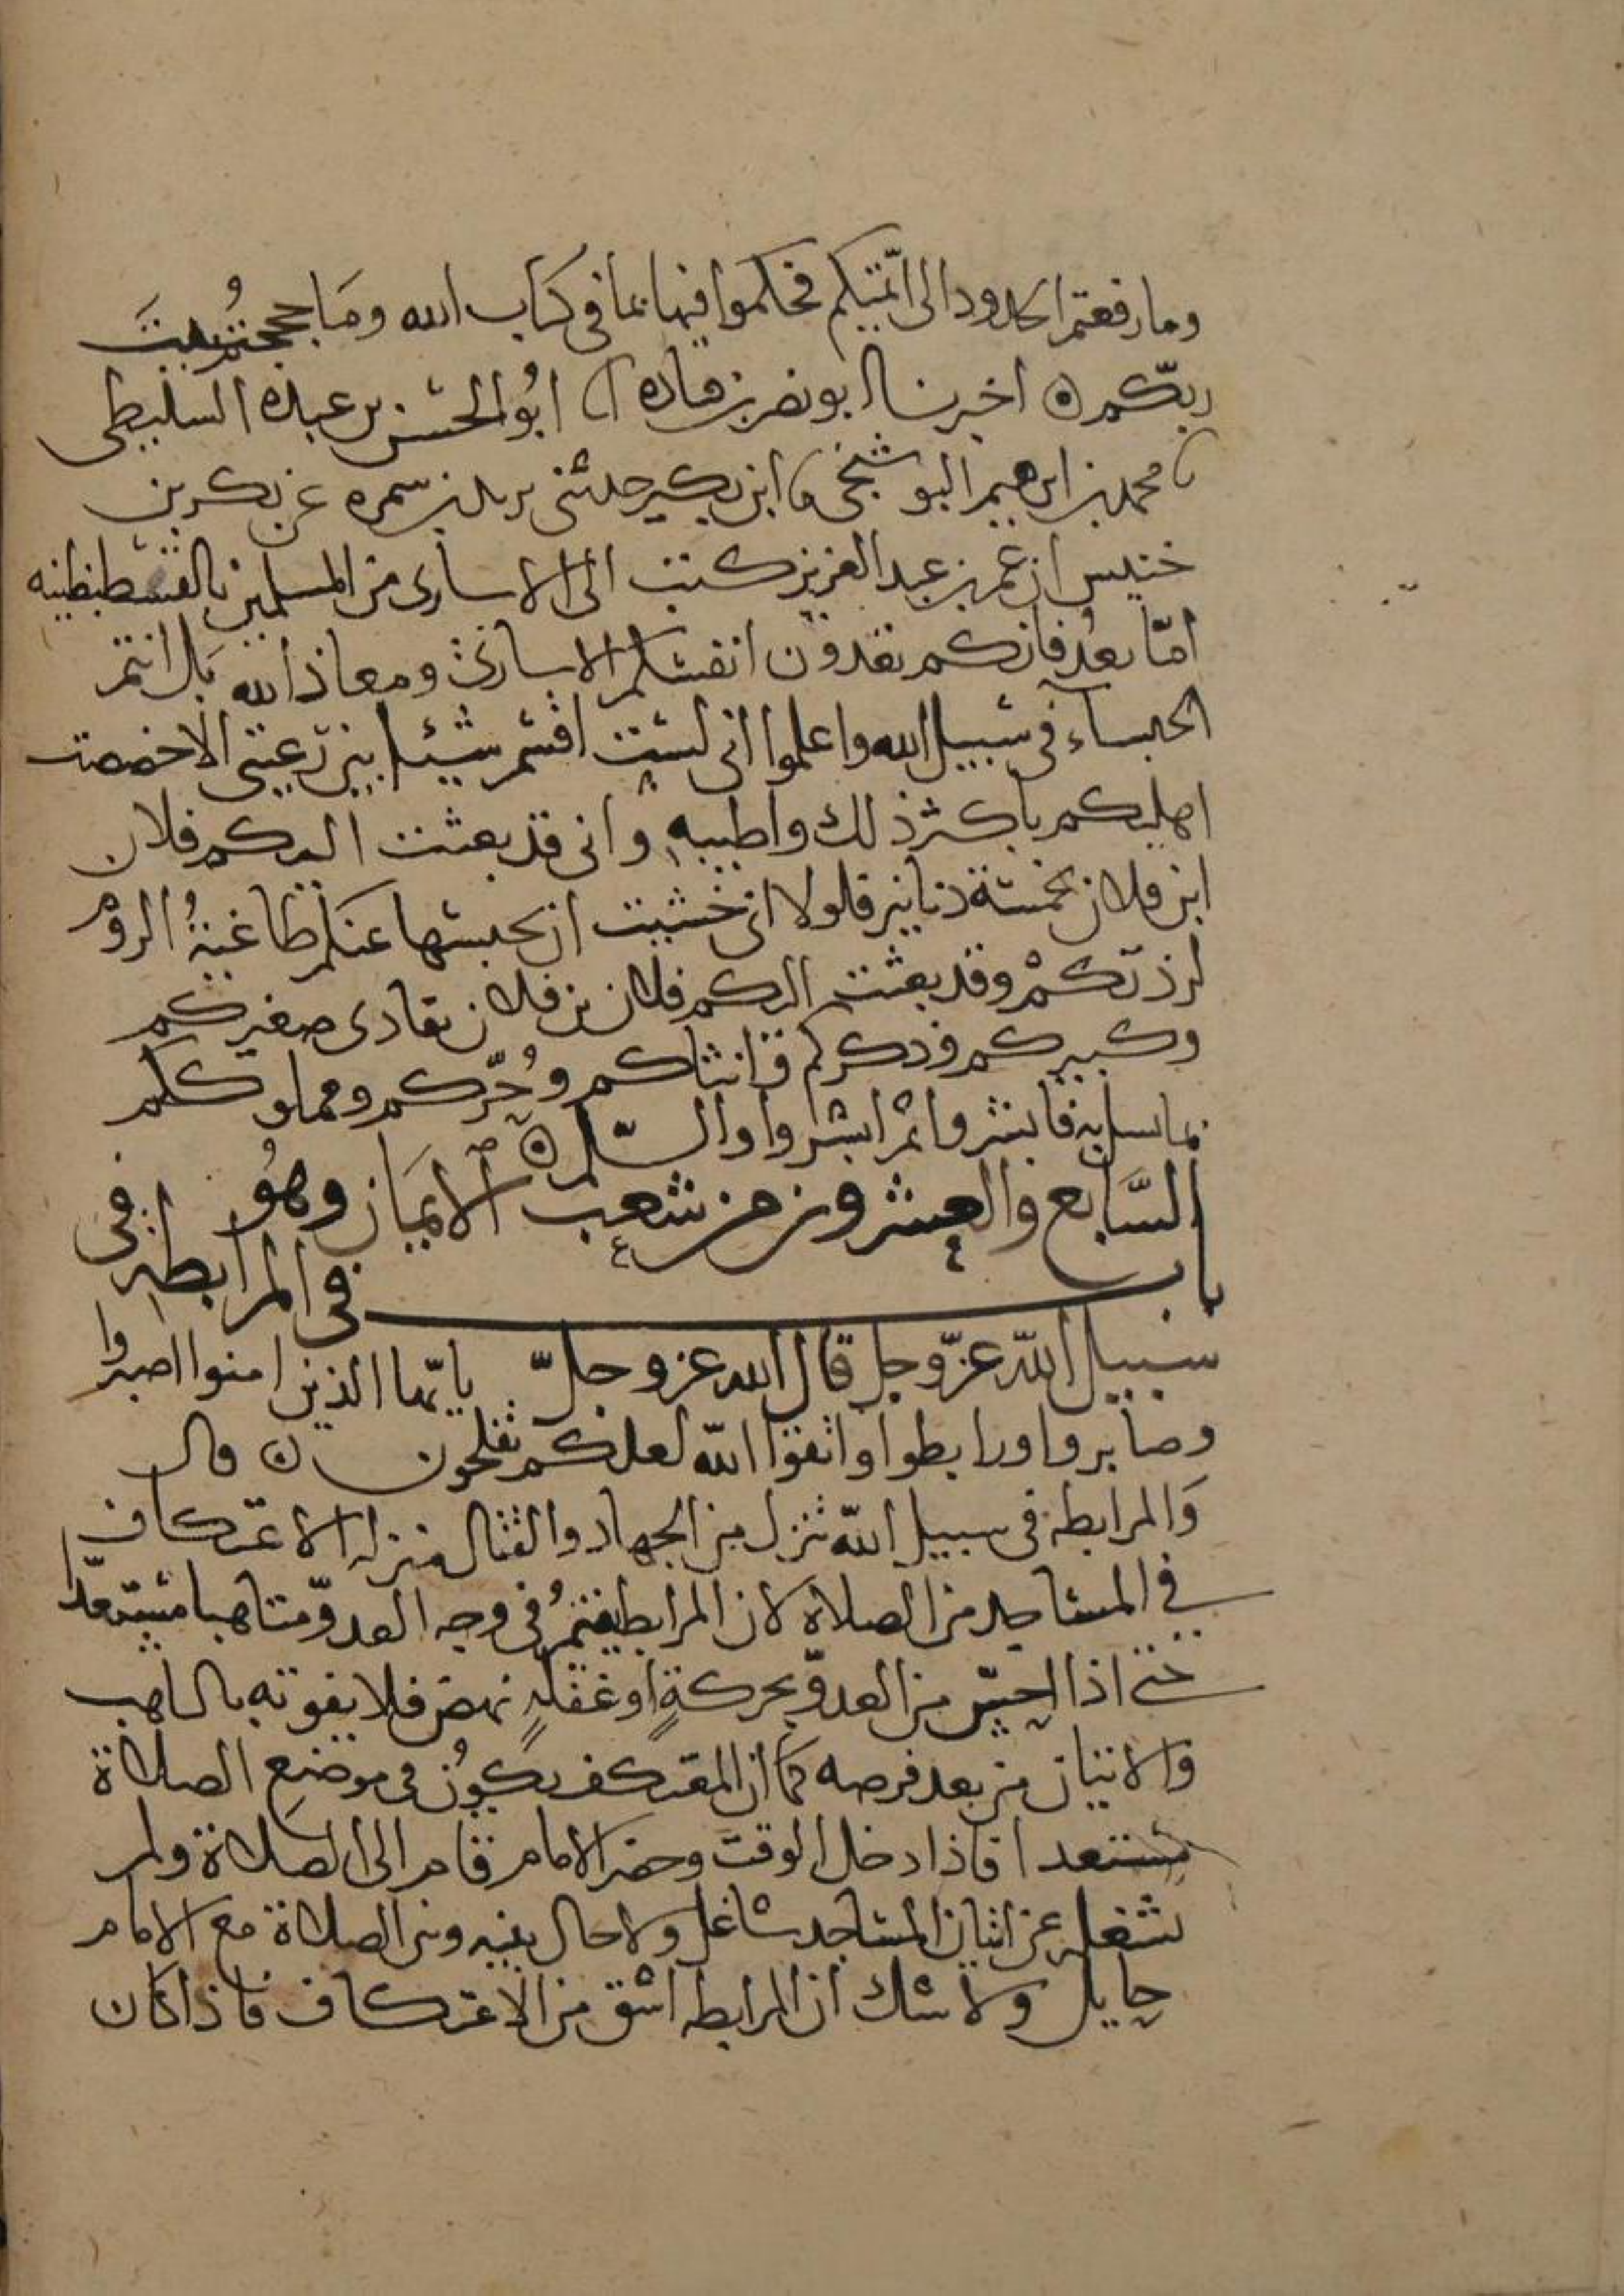 وما رفعتم الحدود الى ائمتكم فحكموا فيها بما في كتاب الله وما حججتم بيت
ربكم ه اخبرنا ابو نصر بن قتادة انا ابو الحسن بن عبده السليطي
نا محمد بن ابرهيم البوشنجي نا ابن بكير حدثني بن سمره عن بكر بن
خنيس ان عمر بن عبد العزيز كتب الى الاسارى من المسلمين بالقسطنطينيه
امّا بعد فانكم تعدون انفسكم الاسارى ومعاذ الله بل انتم
الحبساء في سبيل الله واعلموا اني لست اقسم شيئا بين رعيتي الا خصصت
اهليكم باكثر ذلك واطيبه واني قد بعثت اليكم فلان
ابن فلان بخمسة دنانير فلولا اني خشيت ان يحبسها عنكم طاغيةُ الروم
لزدتكم وقد بعثت اليكم فلان بن فلان يفادى صغيركم
وكبيركم وذكركم وانثاكم وحُرّكم ومملوككم
بما يسل به فابشروا ثم ابشروا والسّلم ه
السَّابع والعشرون من شعب الايمَان وهُو
باب في المرابطه في
سبيل الله عزّ وجل قال الله عز وجلّ يايّها الذين امنوا اصبروا
وصابروا ورابطوا واتقوا الله لعلكم تفلحون ه قال
وَالمرابطه في سبيل الله تنزل من الجهاد والقتال منزله الاعتكاف
في المساجد من الصلاة لان المرابط يقيمُ في وجه العدوّ متاهبا مستعدّا
حتى اذا احسّ من العدوّ بحركةٍ او غفلهٍ نهض فلا يفوته بالتاهب
والاتيان من بعد فرصه كما ان المعتكف يكونُ في موضع الصلاة
مستعدا فاذا دخل الوقت وحضر الامام قام الى الصلاة ولم
يشغله عن اتيان المساجد شاغل ولا حال بينه وبين الصلاة مع الامام
حايل ولا شك ان المرابطه اشق من الاعتكاف فاذا كان